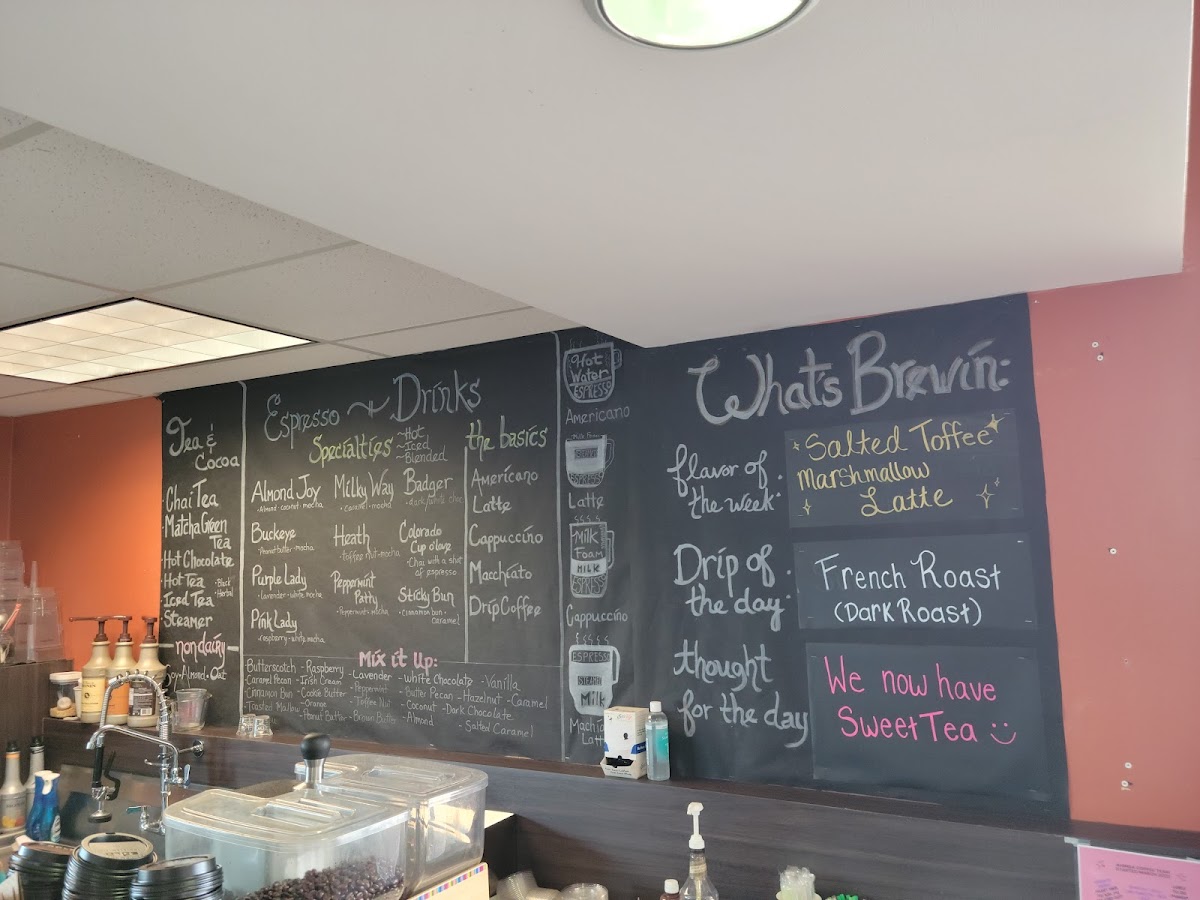 Tea &
Cocoa
Chai Tea
Matcha Green
Tea
Hot Chocolate
Hot Tea
• Black
• Herbal
Iced Tea
Steamer
non dairy
Soy • Almond • Oat
Espresso Drinks
Specialties
~Hot
~Iced
~Blended
Almond Joy
• Almond • coconut • mocha
Buckeye
• Peanut butter • mocha
Purple Lady
• Lavender • white mocha
Pink Lady
• raspberry • white mocha
Milky Way
• caramel • mocha
Heath
• toffee nut • mocha
Peppermint
Patty
• Peppermint mocha
Badger
• dark/white choc
Colorado
Cup o' love
• Chai with a shot
of espresso
Sticky Bun
• Cinnamon bun •
caramel
the basics
Americano
Latte
Cappuccino
Macchiato
Drip Coffee
Mix it Up:
Butterscotch - Raspberry - Lavender - White Chocolate - Vanilla
Caramel Pecan - Irish Cream - Peppermint - Butter Pecan - Hazelnut - Caramel
Cinnamon Bun - Cookie Butter - Toffee Nut - Coconut - Dark Chocolate
Toasted Mallow - Orange - Almond - Salted Caramel
- Peanut Butter - Brown Butter
Hot
Water
ESPRESSO
Americano
Latte
Milk
Foam
MILK
Cappuccino
ESPRESSO
STEAMED
Milk
What's Brewin:
flavor of
the week:
Salted Toffee
Marshmallow
Latte
Drip of
the day:
French Roast
(Dark Roast)
thought
for the day
We now have
Sweet Tea